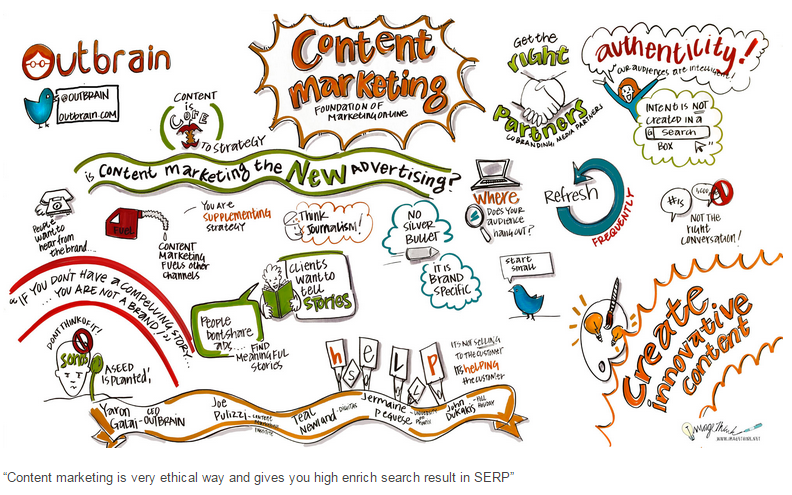 Outbrain
@OUTBRAIN
OUTBRAIN.COM
CONTENT
IS
CORE
TO STRATEGY
Content
marketing
FOUNDATION OF
MARKETING ONLINE
Get the
right
Partners
COBRANDING, MEDIA PARTNERS
authenticity!
OUR AUDIENCES ARE INTELLIGENT!
INTENT IS NOT
CREATED IN A
Search
BOX
is Content marketing the New ADVERTISING?
PEOPLE
WANT TO
HEAR FROM
THE BRAND...
FUEL
CONTENT
MARKETING
FUELS OTHER
CHANNELS
YOU ARE
SUPPLEMENTING
STRATEGY
Think
Journalism!
NO
SILVER
BULLET
IT IS
BRAND
SPECIFIC
WHERE
DOES YOUR
AUDIENCE
HANG OUT?
Refresh
FREQUENTLY
start
small
#IS
NOT THE
RIGHT
CONVERSATION!
"IF YOU DON'T HAVE A COMPELLING STORY...
...YOU ARE NOT A BRAND!"
Clients
want to
tell
STORIES
People
Don't share
ADS...
FIND
MEANINGFUL
STORIES
DON'T THINK OF IT!
A SEED
IS PLANTED
h e l p
IT'S NOT SELLING
TO THE CUSTOMER
IT'S HELPING
THE CUSTOMER
Create
innovative
content
Yaron
Galai
CEO
-OUTBRAIN
Joe
Pulizzi
Teal
Newland
-DIGITAS
Jermaine
Peguese
John
Dukakis
-HILL
HOLIDAY
imagethink
WWW.IMAGETHINK.NET
“Content marketing is very ethical way and gives you high enrich search result in SERP”